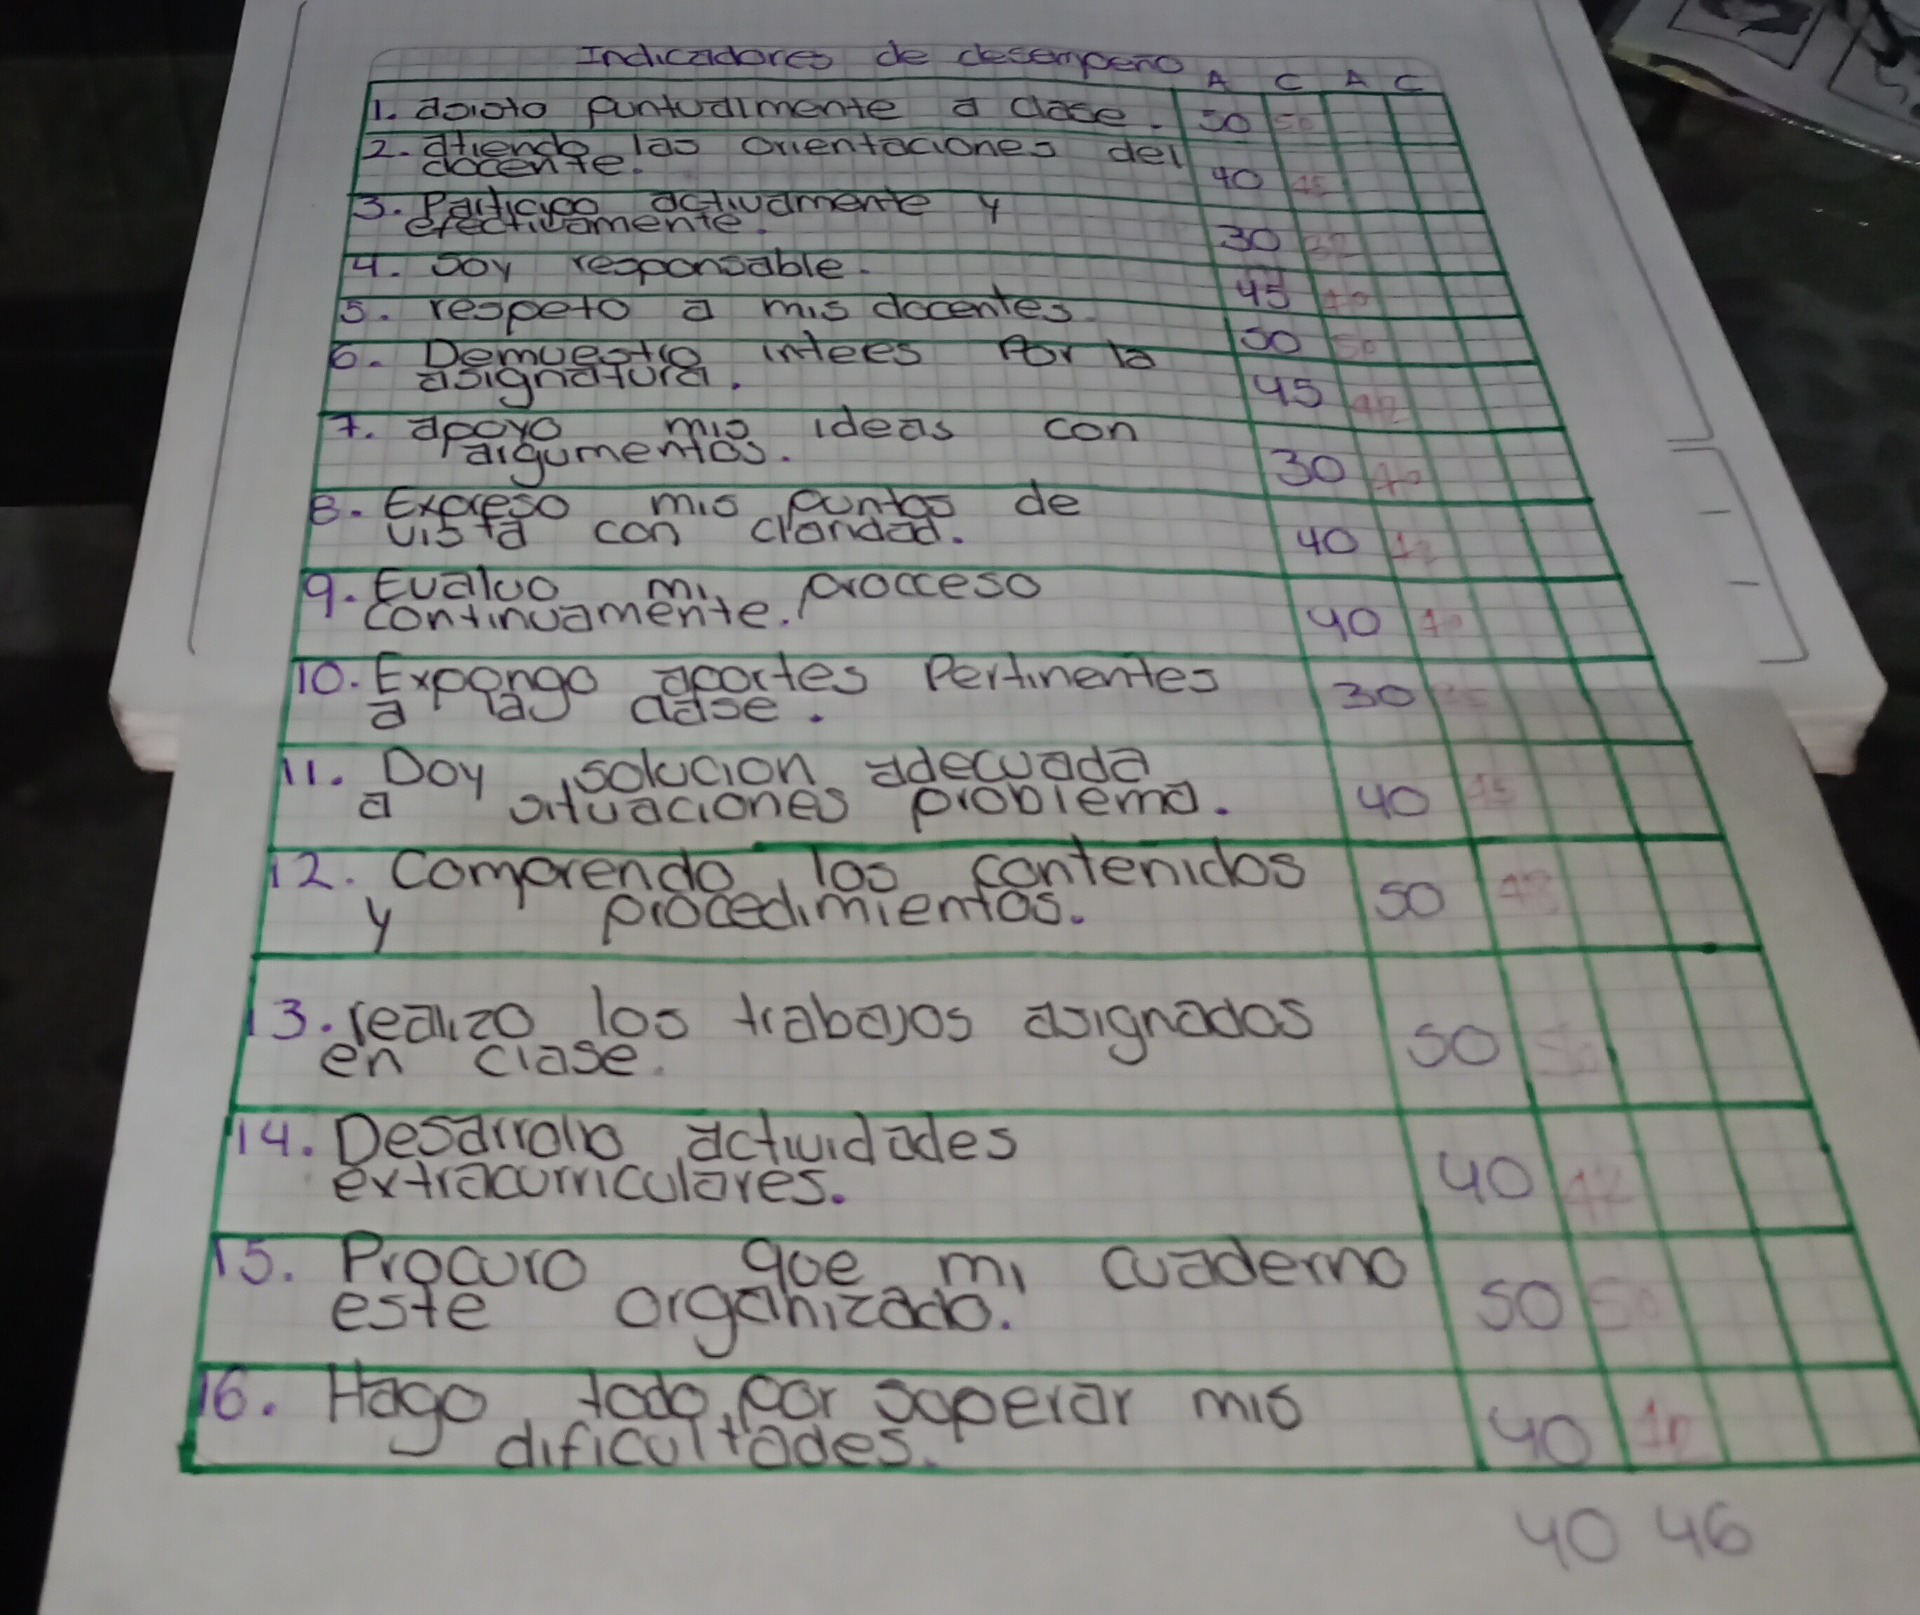 Indicadores de desempeño A C A C
1. asisto puntualmente a clase. 50 50
2. atiendo las orientaciones del
docente. 40 45
3. Participo activamente y
efectivamente. 30
4. soy responsable. 45 40
5. respeto a mis docentes. 50 50
6. Demuestro intees Por la
asignatura. 45
7. apoyo mis ideas con
argumentos. 30 40
8. Expreso mis puntos de
vista con claridad. 40
9. Evaluo mi procceso
continuamente. 40 40
10. Expongo aportes Pertinentes
a la clase. 30
11. Doy solucion adecuada
a situaciones problema. 40 45
12. Comprendo los contenidos
y procedimientos. 50
13. realizo los trabajos asignados
en clase. 50 50
14. Desarrollo actividades
extracurriculares. 40 42
15. Procuro que mi cuaderno
este organizado. 50 50
16. Hago todo por superar mis
dificultades. 40
40 46